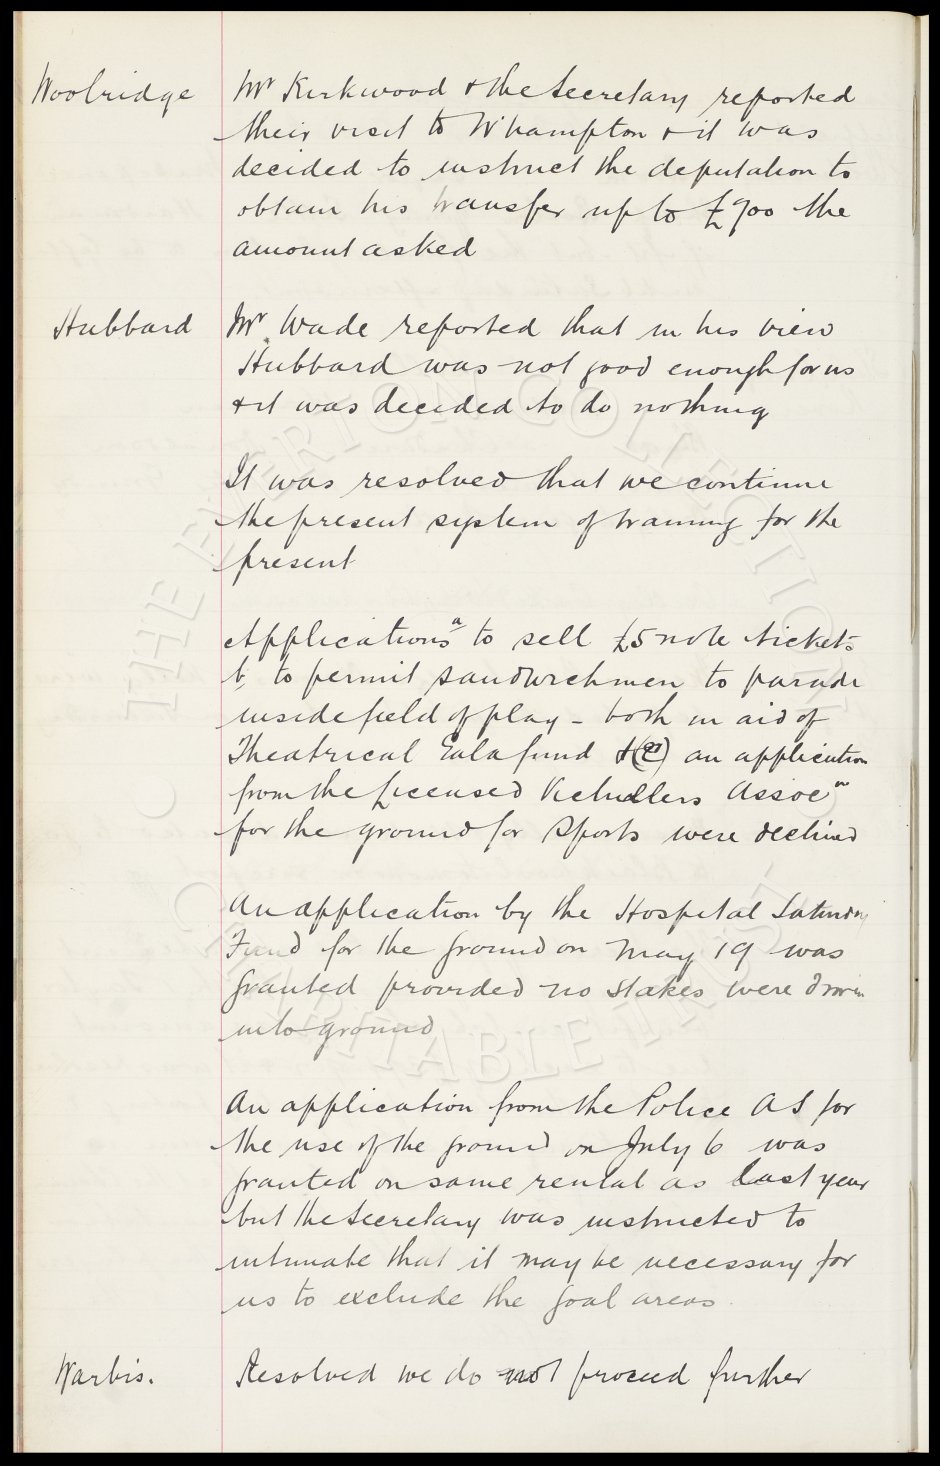 Woolridge Mr Kirkwood & the Secretary reported
their visit to W'hampton & it was
decided to instruct the deputation to
obtain his transfer up to £700 the
amount asked
Hubbard Mr. Wade reported that in his view
Hubbard was not good enough for us
& it was decided to do nothing
It was resolved that we continue
the present system of training for the
present
Applications a to sell £5 note tickets
b, to permit sandwichmen to parade
inside field of play - both in aid of
Theatrical Gala fund & (c) an application
from the Licensed Victuallers Assocn
for the ground for Sports were declined
An application by the Hospital Saturday
Fund for the ground on May 19 was
granted provided no stakes were driven
into ground
An application from the Police AS for
the use of the ground on July 6 was
granted on same rental as last year
but the Secretary was instructed to
intimate that it may be necessary for
us to exclude the goal areas.
Warbis. Resolved we do not proceed further
© THE EVERTON COLLECTION
CHARITABLE TRUST